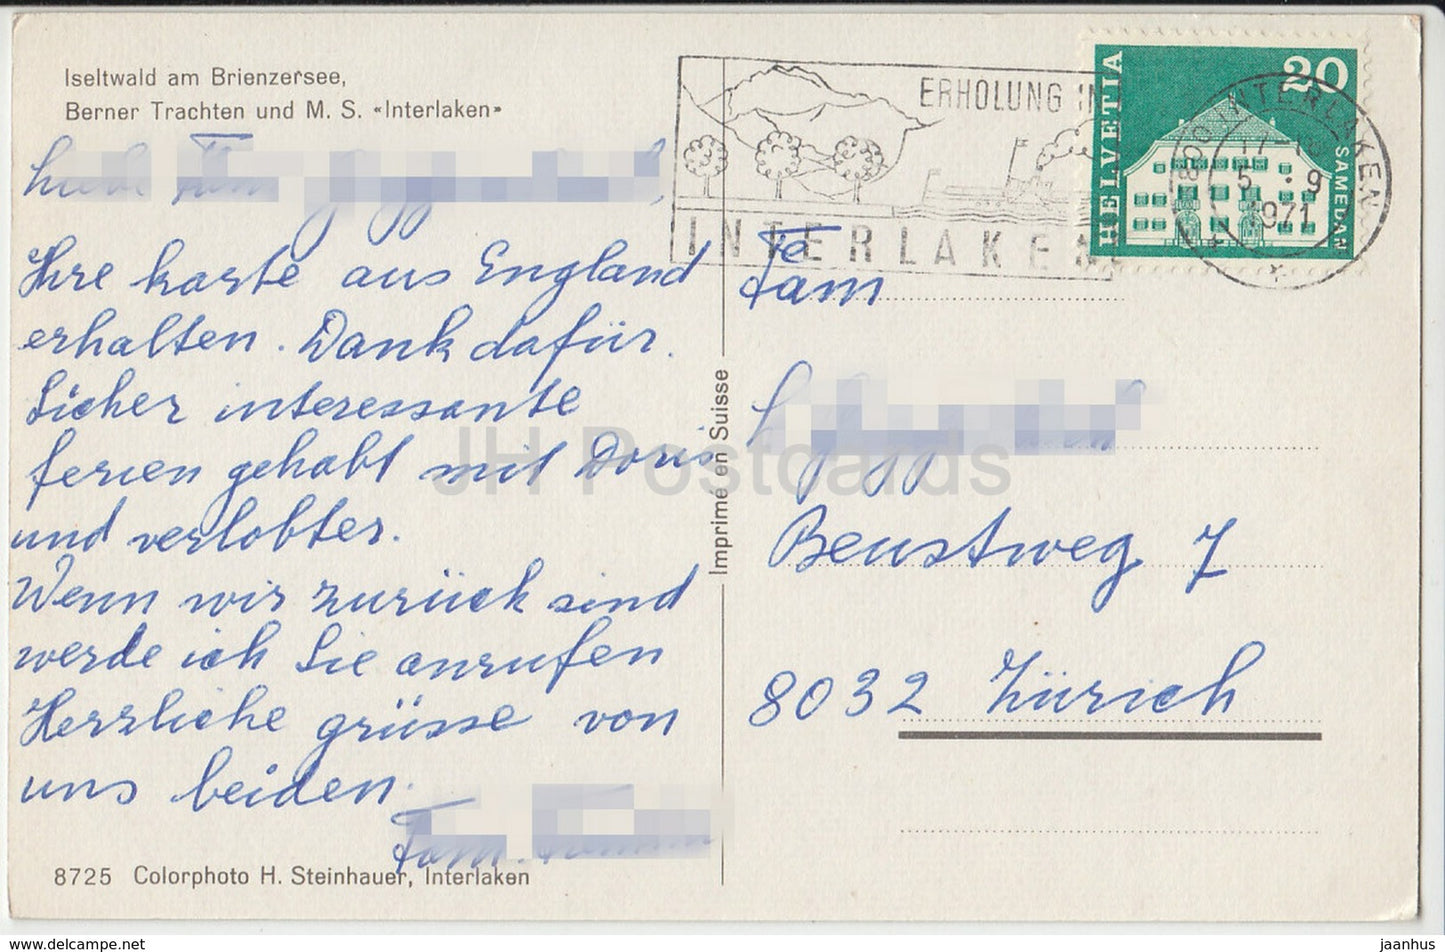 Iseltwald am Brienzersee,
Berner Trachten und M. S. «Interlaken»
Liebe Fam
Ihre karte aus England
erhalten. Dank dafür.
Sicher interessante
ferien gehabt mit Doris
und verlobter.
Wenn wir zurück sind
werde ich Sie anrufen
Herzliche grüsse von
uns beiden.
Fam.
8725 Colorphoto H. Steinhauer, Interlaken
Imprimé en Suisse
ERHOLUNG IN
INTERLAKEN
HELVETIA
20
SAMEDAN
3800 INTERLAKEN
5.-9
1971
Fam
Beustweg 7
8032 Zürich
JH Postcards
www.delcampe.net
jaanhus